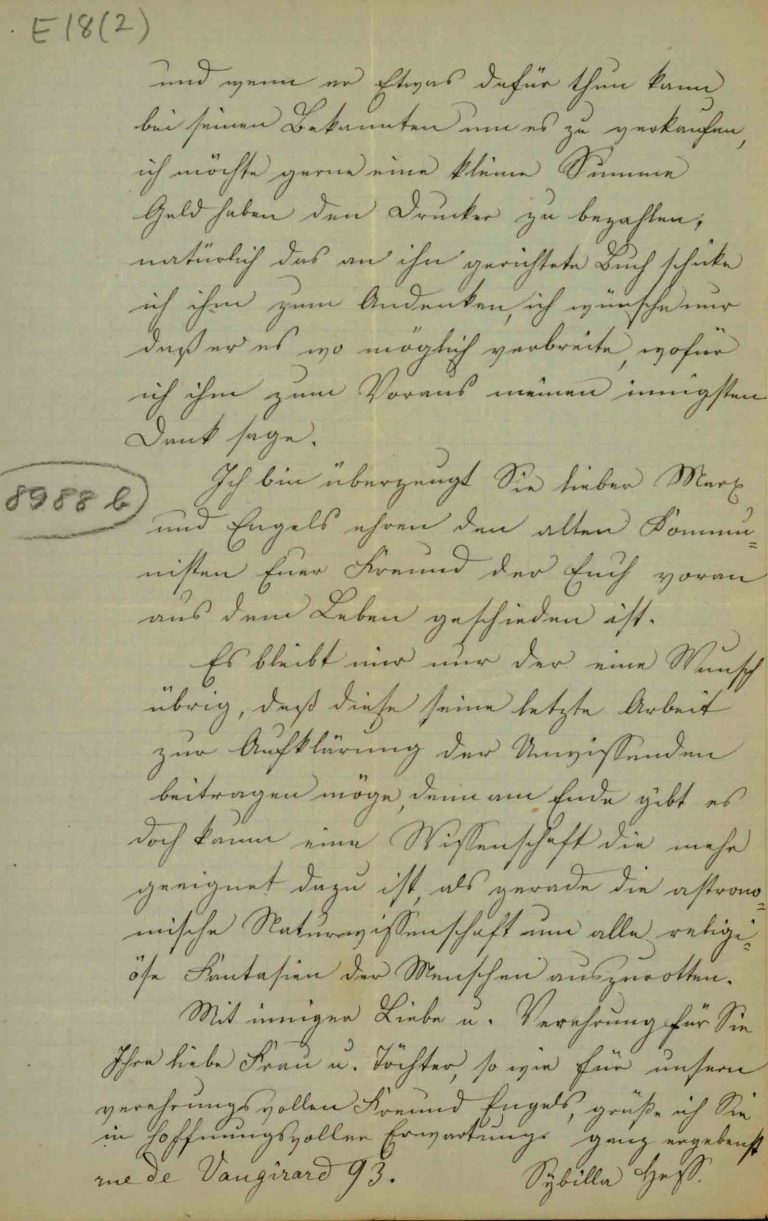 E 18(2)
und wenn er Etwas dafür thun kann
bei seinen Bekannten um es zu verkaufen,
ich möchte gerne eine kleine Summe
Geld haben den Drucker zu bezahlen;
natürlich das an ihn gerichtete Buch schicke
ich ihm zum Andenken, ich wünsche nur
daß er es wo möglich verbreite, wofür
ich ihm zum Voraus meinen innigsten
Dank sage.
Ich bin überzeugt Sie lieber Marx
8988 b
und Engels ehren den alten Kommu=
nisten Euer Freund der Euch voran
aus dem Leben geschieden ist.
Es bleibt mir nur der eine Wunsch
übrig, daß diese seine letzte Arbeit
zur Aufklärung der Unwissenden
beitragen möge, denn am Ende gibt es
doch kaum eine Wissenschaft die mehr
geeignet dazu ist, als gerade die astrono=
mische Naturwissenschaft um alle religi=
öse Fantasien der Menschen auszurotten.
Mit inniger Liebe u. Verehrung für Sie
Ihre liebe Frau u. Töchter, so wie für unsern
verehrungsvollen Freund Engels, grüße ich Sie
in hoffnungsvoller Erwartung ganz ergebenst
rue de Vaugirard 93. Sybilla Hess.